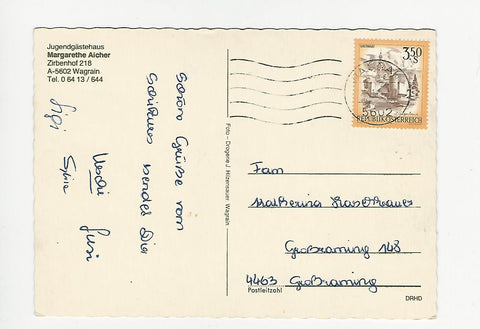 Jugendgästehaus
Margarethe Aicher
Zirbenhof 218
A-5602 Wagrain
Tel. 0 64 13 / 644
Schöne Grüße vom
Schikurs sendet Dir
Uschi
Susi
Sylvia
Foto - Drogerie J. Hitzensauer, Wagrain
3.50
S
REPUBLIK ÖSTERREICH
5602
Katharina
Großraming 148
4463 Großraming
Postleitzahl
DRHD